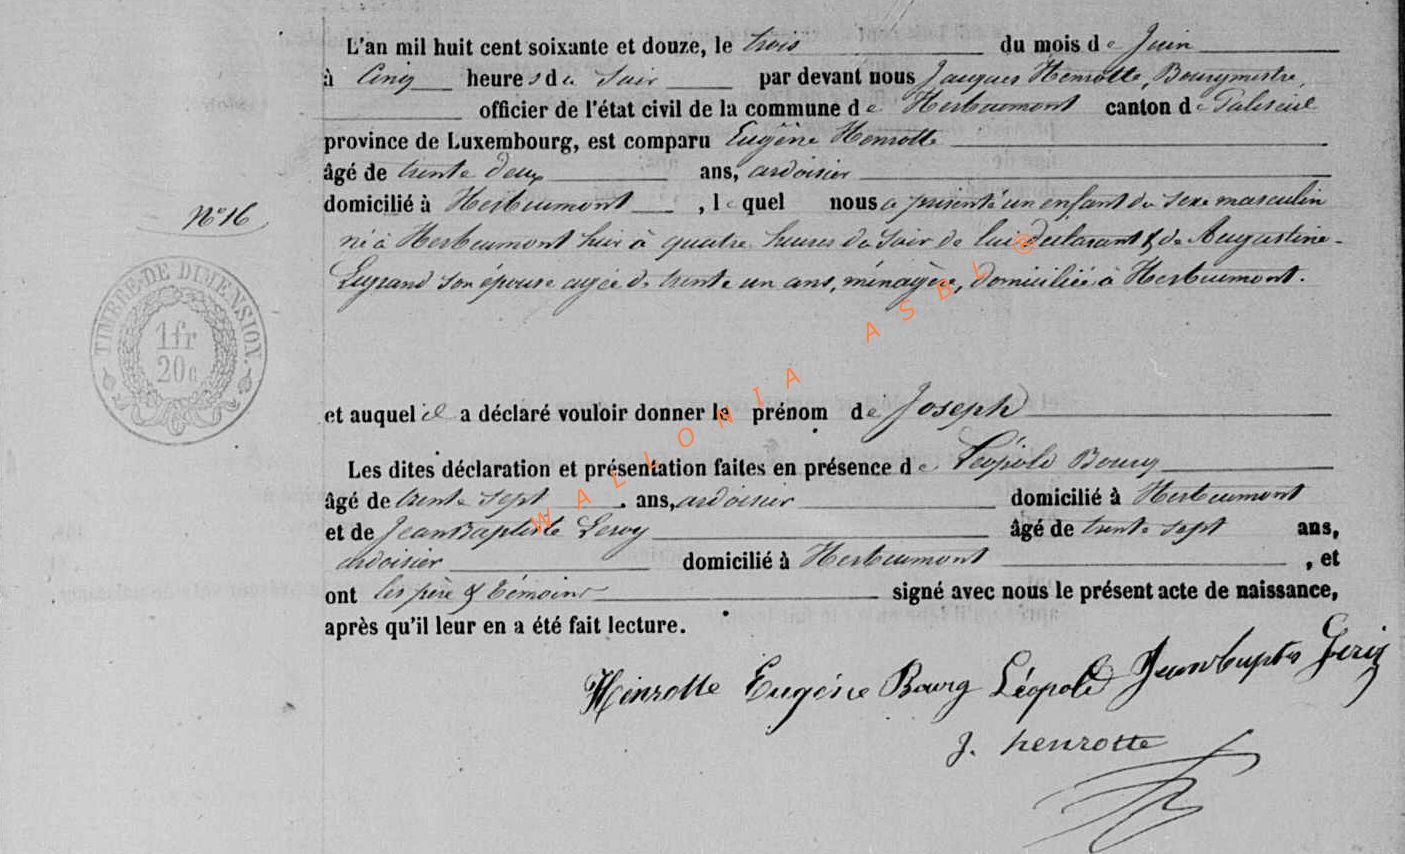 L'an mil huit cent soixante et douze, le trois du mois de Juin
à Cinq heures du Soir par devant nous Jacques Henrotte, Bourgmestre
officier de l'état civil de la commune de Herbeumont canton de Paliseul
province de Luxembourg, est comparu Eugène Henrotte
âgé de trente deux ans, ardoisier
domicilié à Herbeumont, lequel nous a présenté un enfant du sexe masculin
N° 16
né à Herbeumont hier à quatre heures du Soir de lui déclarant & de Augustine
Legrand son épouse agée de trente un ans, ménagère, domiciliée à Herbeumont.
TIMBRE DE DIMENSION.
1fr
20c
WALLONIA ASBL ®
et auquel il a déclaré vouloir donner le prénom de Joseph
Les dites déclaration et présentation faites en présence de Léopold Bourg
âgé de trente sept ans, ardoisier domicilié à Herbeumont
et de Jean Baptiste âgé de trente sept ans,
ardoisier domicilié à Herbeumont, et
ont les père & témoins signé avec nous le présent acte de naissance,
après qu'il leur en a été fait lecture.
Henrotte Eugène Bourg Léopold Jean baptis
J. henrotte